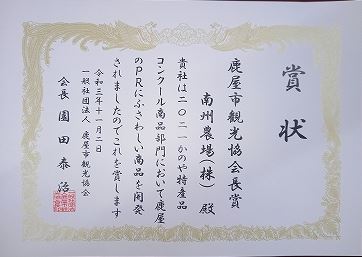 賞状
鹿屋市観光協会長賞
南州農場(株) 殿
貴社は二〇二一かのや特産品
コンクール商品部門において鹿屋
のPRにふさわしい商品を開発
されましたのでこれを賞します
令和三年十一月二日
一般社団法人 鹿屋市観光協会
会長 園田泰治